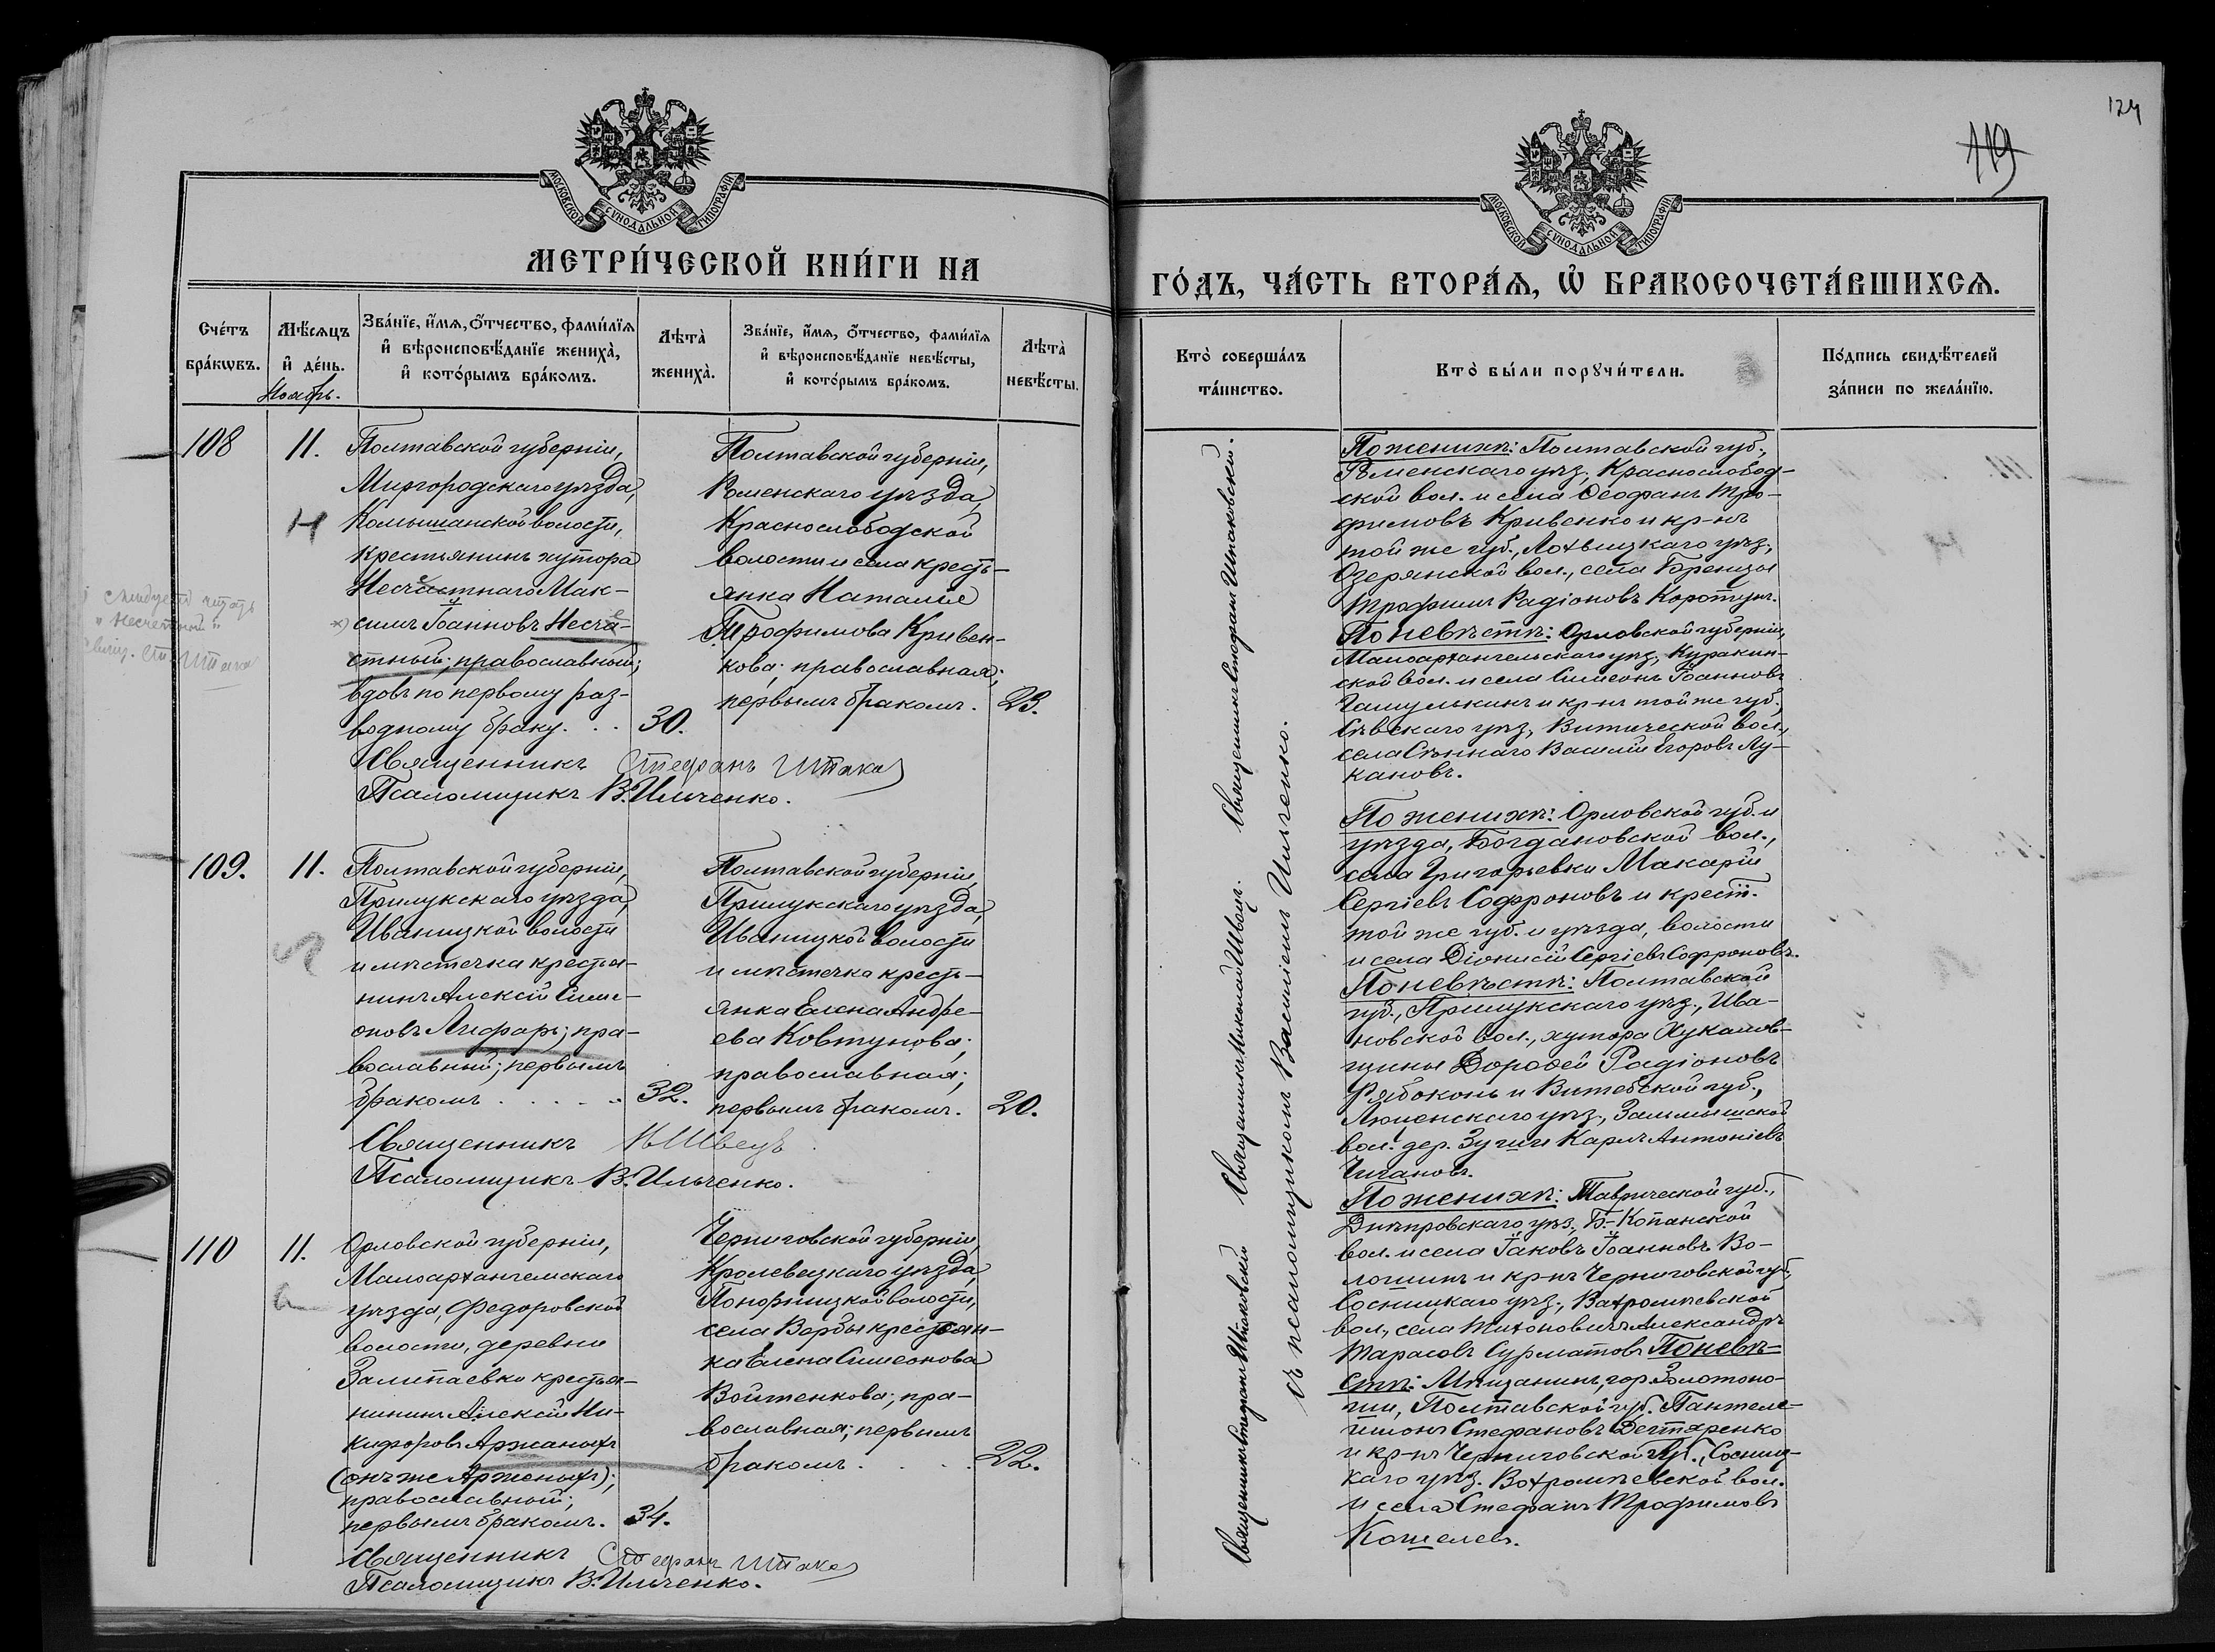 124
119
МОСКОВСКОЙ СѴНОДАЛЬНОЙ ТИПОГРАФІИ
МЕТРИ́ЧЕСКОЙ КНИ́ГИ НА
Сче́тъ бра́кѡвъ.
Мѣ́сѧцъ и҆ де́нь.
Ноябрь.
Зва́нїе, и҆́мѧ, ѻ҆́тчество, фами́лїѧ
и҆ вѣроисповѣ́данїе женихà,
и҆ кото́рымъ бра́комъ.
Лѣтà женихà.
Зва́нїе, и҆́мѧ, ѻ҆́тчество, фами́лїѧ
и҆ вѣроисповѣ́данїе невѣ́сты,
и҆ кото́рымъ бра́комъ.
Лѣтà невѣ́сты.
108
11.
Полтавской губерніи,
Миргородскаго уѣзда,
Комышанской волости,
крестьянинъ хутора
Несчастнаго Мак-
симъ Іоанновъ Несча-
стный; православный;
вдовъ по первому раз-
водному браку. . .
30.
Полтавской губерніи,
Роменскаго уѣзда,
Краснослободской
волости и села кресть-
янка Наталія
Трофимова Кривен-
кова; православная;
первымъ бракомъ.
23.
Священникъ Стефанъ Штака
Псаломщикъ В. Ильченко.
слѣдуетъ читать
"Несчетный"
свящ. Ст. Штака
109.
11.
Полтавской губерніи,
Прилукскаго уѣзда,
Иваницкой волости
и мѣстечка крестья-
нинъ Алексій Симе-
оновъ Лифарь; пра-
вославный; первымъ
бракомъ . . . . .
32.
Полтавской губерніи,
Прилукскаго уѣзда,
Иваницкой волости
и мѣстечка кресть-
янка Елена Андре-
ева Ковтунова;
православная;
первымъ бракомъ.
20.
Священникъ Н Швецъ
Псаломщикъ В. Ильченко.
110
11.
Орловской губерніи,
Малоархангельскаго
уѣзда, Федоровской
волости, деревни
Залипаевки крестья-
нинъ Алексій Ни-
кифоровъ Аржаныхъ
(онъ же Арженыхъ);
православный;
первымъ бракомъ.
34.
Черниговской губерніи,
Кролевецкаго уѣзда,
Понорницкой волости,
села Вербы крестьян-
ка Елена Симеонова
Войтенкова; пра-
вославная; первымъ
бракомъ . . . .
22.
Священникъ Стефанъ Штака
Псаломщикъ В. Ильченко.
МОСКОВСКОЙ СѴНОДАЛЬНОЙ ТИПОГРАФІИ
ГО́ДЪ, ЧА́СТЬ ВТОРА́Ѧ, Ѽ БРАКОСОЧЕТА́ВШИХСѦ.
Кто̀ соверша́лъ та́инство.
Кто̀ бы́ли порꙋчи́тели.
По́дпись свидѣ́телей
за́писи по жела́нїю.
Священникъ Стефанъ Штаковскій
Священникъ Николай Швецъ.
Священникъ Стефанъ Штаковскій.
съ псаломщикомъ Василіемъ Ильченко.
По женихѣ: Полтавской губ.,
Роменскаго уѣз., Краснослобод-
ской вол. и села Ѳеофанъ Тро-
фимовъ Кривенко и кр-нъ
той же губ., Лохвицкаго уѣз.,
Озерянской вол., села
Трофимъ Радіоновъ Коротунъ.
По невѣстѣ: Орловской губерніи,
Малоархангельскаго уѣз., Куракин-
ской вол. и села Симеонъ Іоанновъ
и кр-нъ той же губ.,
Сѣвскаго уѣз., вол.,
села Василій Егоровъ Лу-
кановъ.
По женихѣ: Орловской губ. и
уѣзда, Богдановской вол.,
села Григорьевки Макарій
Сергіевъ Софроновъ и крест.
той же губ. и уѣзда, волости
и села Діонисій Сергіевъ Софроновъ.
По невѣстѣ: Полтавской
губ., Прилукскаго уѣз., Ива-
новской вол., хутора Жукалов-
щины Дороѳей Радіоновъ
Рябоконь и Витебской губ.,
Люценскаго уѣз.,
вол. дер. Карлъ Антоніевъ
Чигановъ.
По женихѣ: Таврической губ.,
Днѣпровскаго уѣз., Б.-Копанской
вол. и села Іаковъ Іоанновъ Во-
лошинъ и кр-нъ Черниговской губ.,
Сосницкаго уѣз., Вахромѣевской
вол., села Тихоновичъ Александръ
Тарасовъ Сурматовъ По невѣ-
стѣ: Мѣщанинъ, гор. Золотоно-
ши, Полтавской губ. Пантеле-
имонъ Стефановъ Дегтяренко
и кр-нъ Черниговской губ., Сосниц-
каго уѣз. Вахромѣевской вол.
и села Стефанъ Трофимовъ
Кошелевъ.